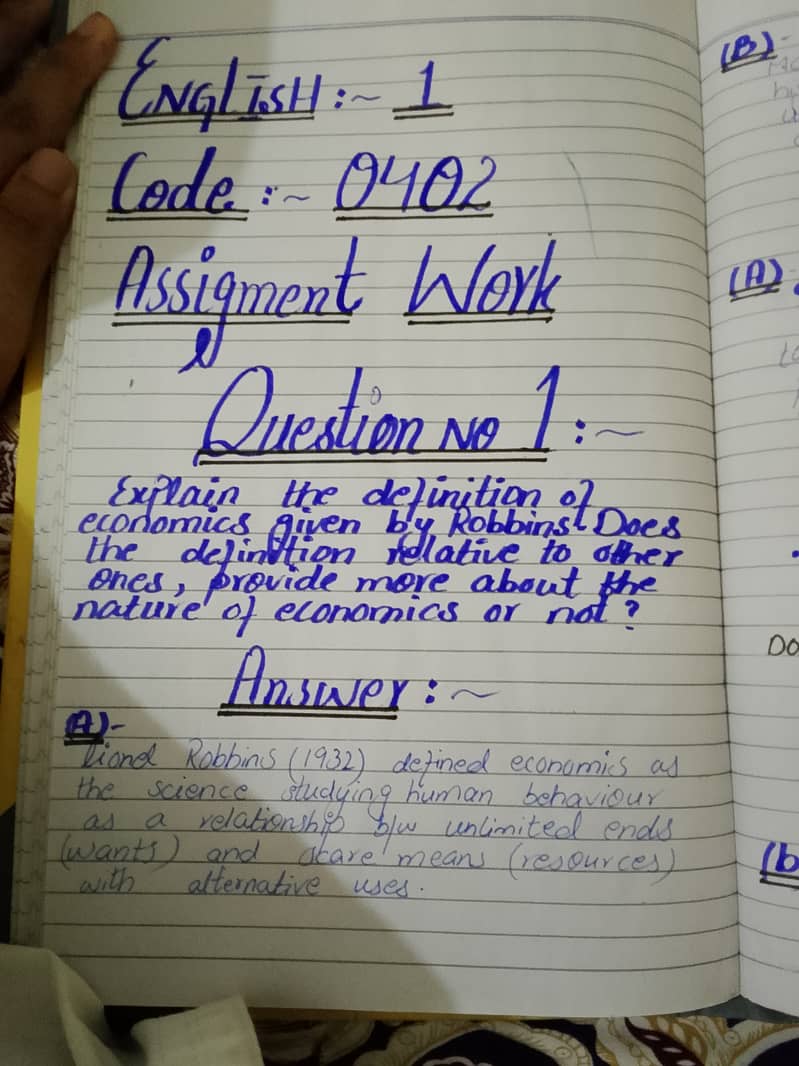 ENGLISH :~ 1
Code :~ 0402
Assigment Work
Question NO 1 :~
Explain the definition of
economics given by Robbins. Does
the definition relative to other
ones, provide more about the
nature of economics or not?
Answer :~
(A)-
Lionel Robbins (1932) defined economics as
the science studying human behaviour
as a relationship b/w unlimited ends
(wants) and scare means (resources)
with alternative uses.
(B)-
(A)-
Do
(b